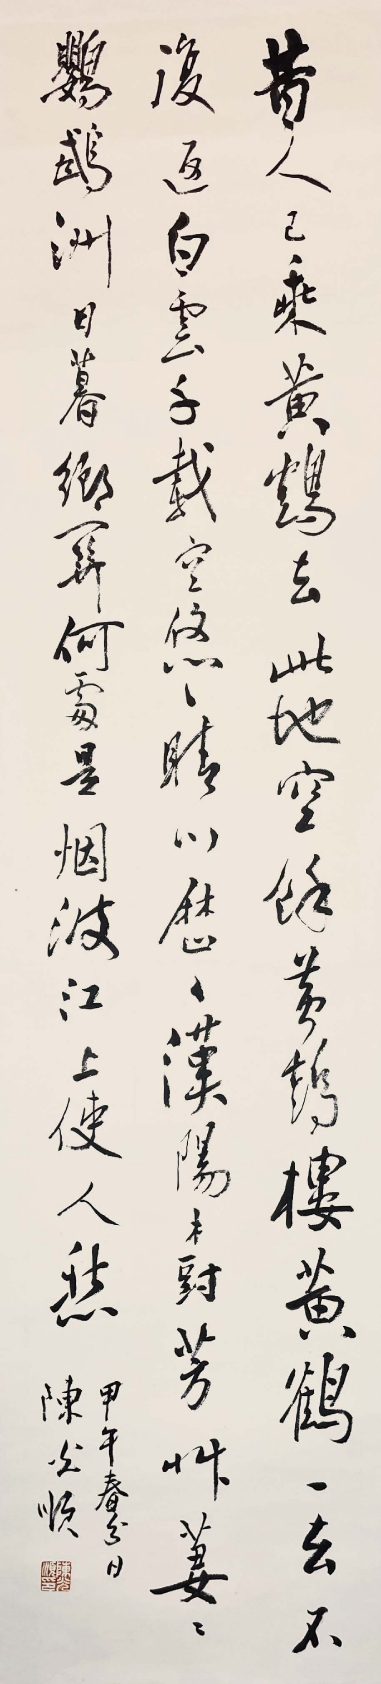 昔人已乘黃鶴去此地空餘黃鶴樓黃鶴一去不
復返白雲千載空悠〻晴川歷〻漢陽樹芳艸萋〻
鸚鵡洲日暮鄉關何處是烟波江上使人愁
甲午春分日
陳光順